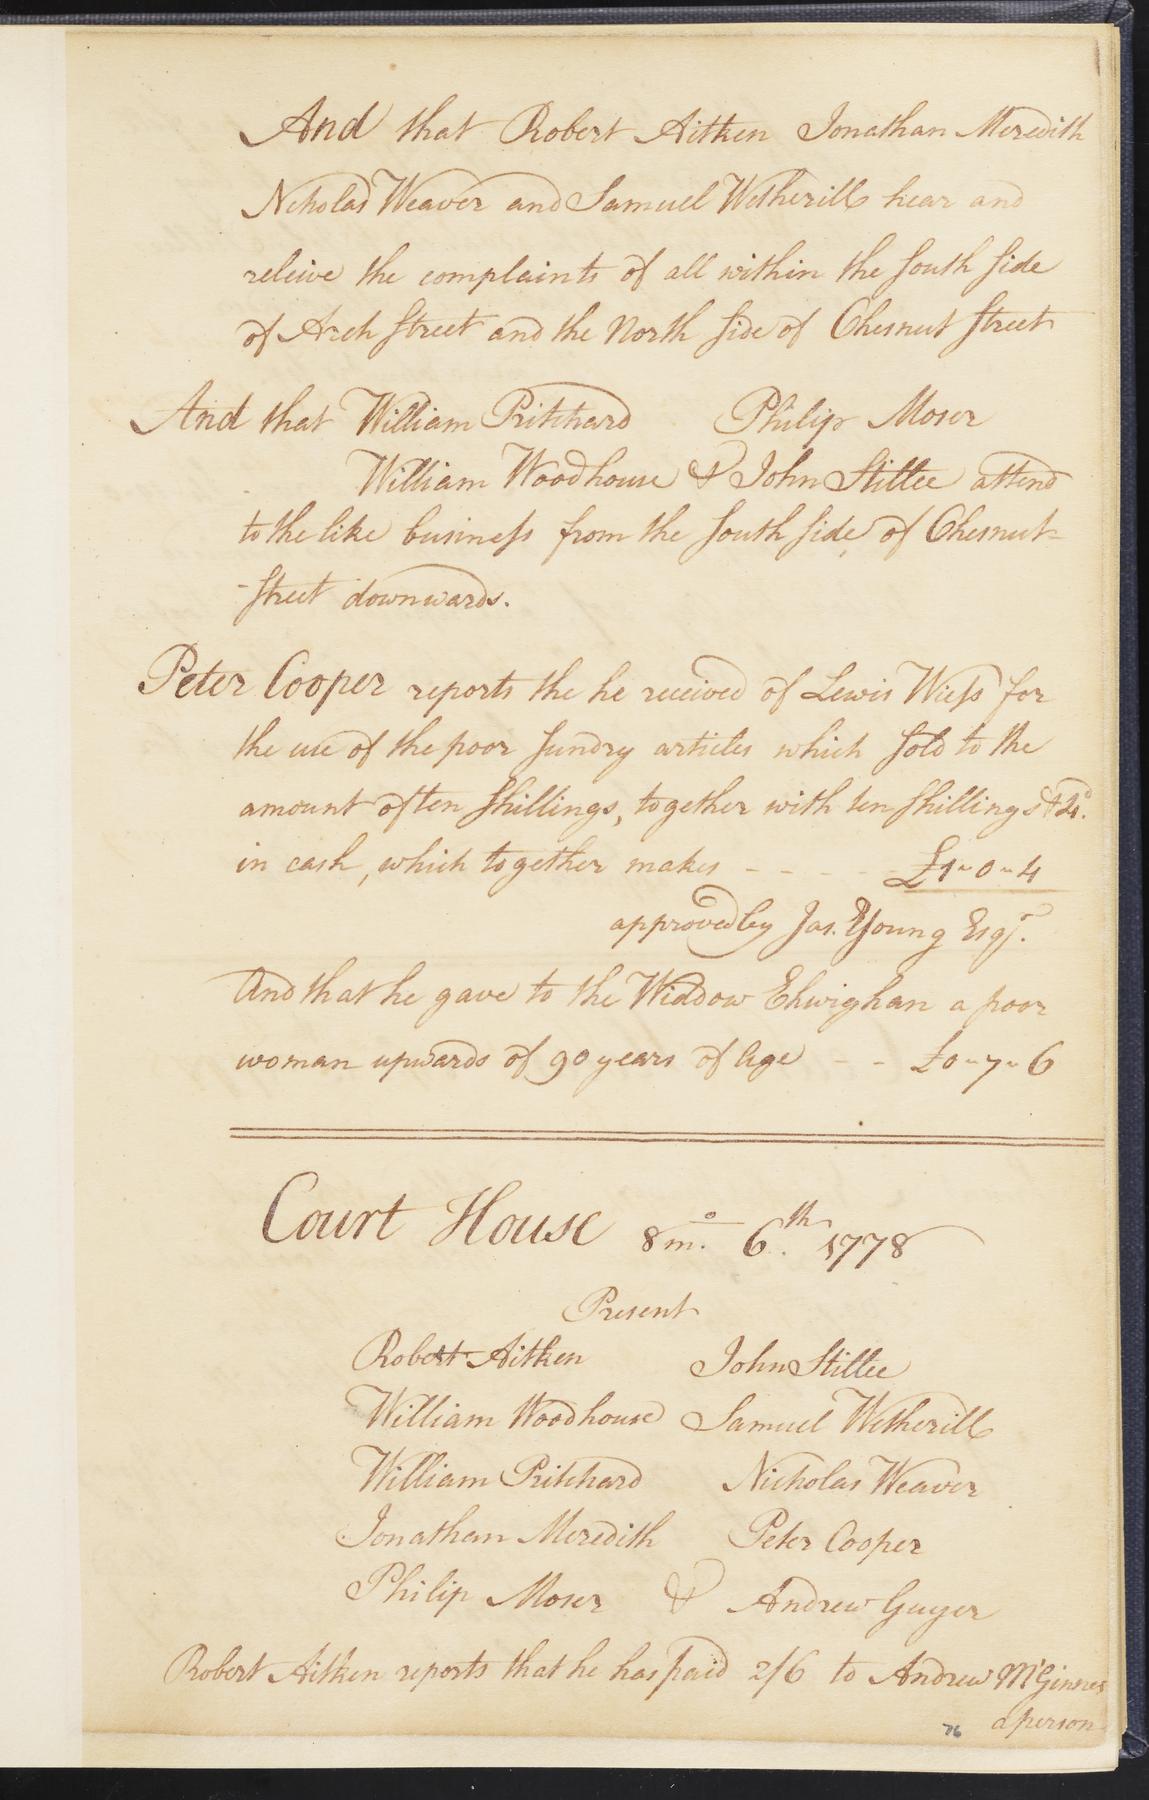 And that Robert Aitken Jonathan Meredith
Nicholas Weaver and Samuel Wetherill hear and
releive the complaints of all within the South side
of Arch Street and the North side of Chesnut Street
And that William Pritchard Philip Moser
William Woodhouse & John Stillee attend
to the like business from the South side, of Chesnut=
-Street downwards.
Peter Cooper reports the he received of Lewis Wiess for
the use of the poor sundry articles which sold to the
amount of ten shillings, together with ten shillings & 4d.
in cash, which together makes - - - - - £1 " 0 " 4
approved by Jas. Young Esqr.
And that he gave to the Widdow Ehwighan a poor
woman upwards of 90 years of Age - - £0 " 7 " 6
Court House 8mo. 6th. 1778
Present
Robert Aitken John Stillee
William Woodhouse Samuel Wetherill
William Pritchard Nicholas Weaver
Jonathan Meredith Peter Cooper
Philip Moser & Andrew Guyer
Robert Aitken reports that he has paid 2/6 to Andrew McGinnes
a person
76